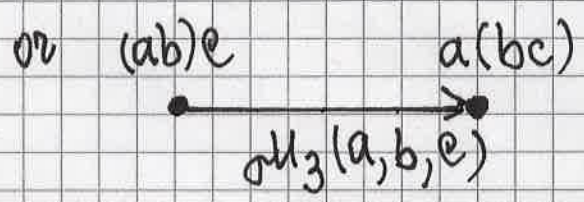 or (ab)c a(bc)
μ₃(a,b,c)